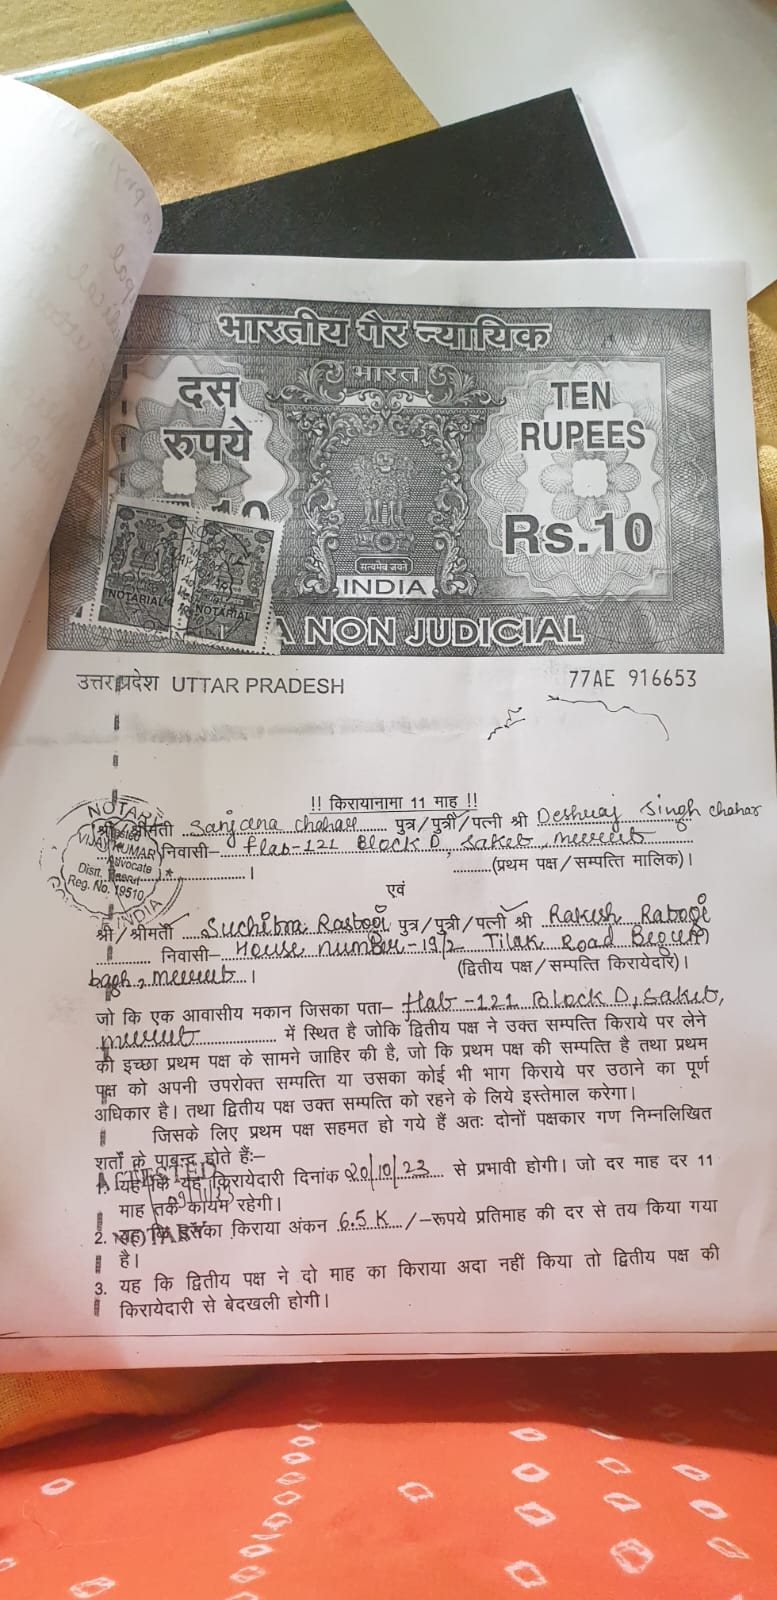 भारतीय गैर न्यायिक
भारत
दस
रुपये
TEN
RUPEES
Rs.10
सत्यमेव जयते
INDIA
NOTARIAL NOTARIAL
A NON JUDICIAL
उत्तर प्रदेश UTTAR PRADESH
77AE 916653
!! किरायानामा 11 माह !!
श्री/श्रीमती Sanjana Chahar पुत्र/पुत्री/पत्नी श्री Deshraj Singh Chahar
निवासी– flat-121 Block D, Saket, meerut
(प्रथम पक्ष/सम्पत्ति मालिक)।
NOTARY
VIJAY KUMAR
Advocate
Distt. Meerut
Reg. No. 19510
INDIA
एवं
श्री/श्रीमती Suchitra Rastogi पुत्र/पुत्री/पत्नी श्री Rakesh
निवासी– House number-19/2 Tilak Road Begum
bagh, meerut। (द्वितीय पक्ष/सम्पत्ति किरायेदार)।
जो कि एक आवासीय मकान जिसका पता– flat-121 Block D, Saket,
meerut में स्थित है जोकि द्वितीय पक्ष ने उक्त सम्पत्ति किराये पर लेने
की इच्छा प्रथम पक्ष के सामने जाहिर की है, जो कि प्रथम पक्ष की सम्पत्ति है तथा प्रथम
पक्ष को अपनी उपरोक्त सम्पत्ति या उसका कोई भी भाग किराये पर उठाने का पूर्ण
अधिकार है। तथा द्वितीय पक्ष उक्त सम्पत्ति को रहने के लिये इस्तेमाल करेगा।
जिसके लिए प्रथम पक्ष सहमत हो गये हैं अतः दोनों पक्षकार गण निम्नलिखित
शर्तो के पाबन्द होते हैं:–
ATTESTED
1. यह कि यह किरायेदारी दिनांक 20/10/23 से प्रभावी होगी। जो दर माह दर 11
माह तक कायम रहेगी।
2. यह कि इसका किराया अंकन 6.5 K /–रूपये प्रतिमाह की दर से तय किया गया
NOTARY
है।
3. यह कि द्वितीय पक्ष ने दो माह का किराया अदा नहीं किया तो द्वितीय पक्ष की
किरायेदारी से बेदखली होगी।